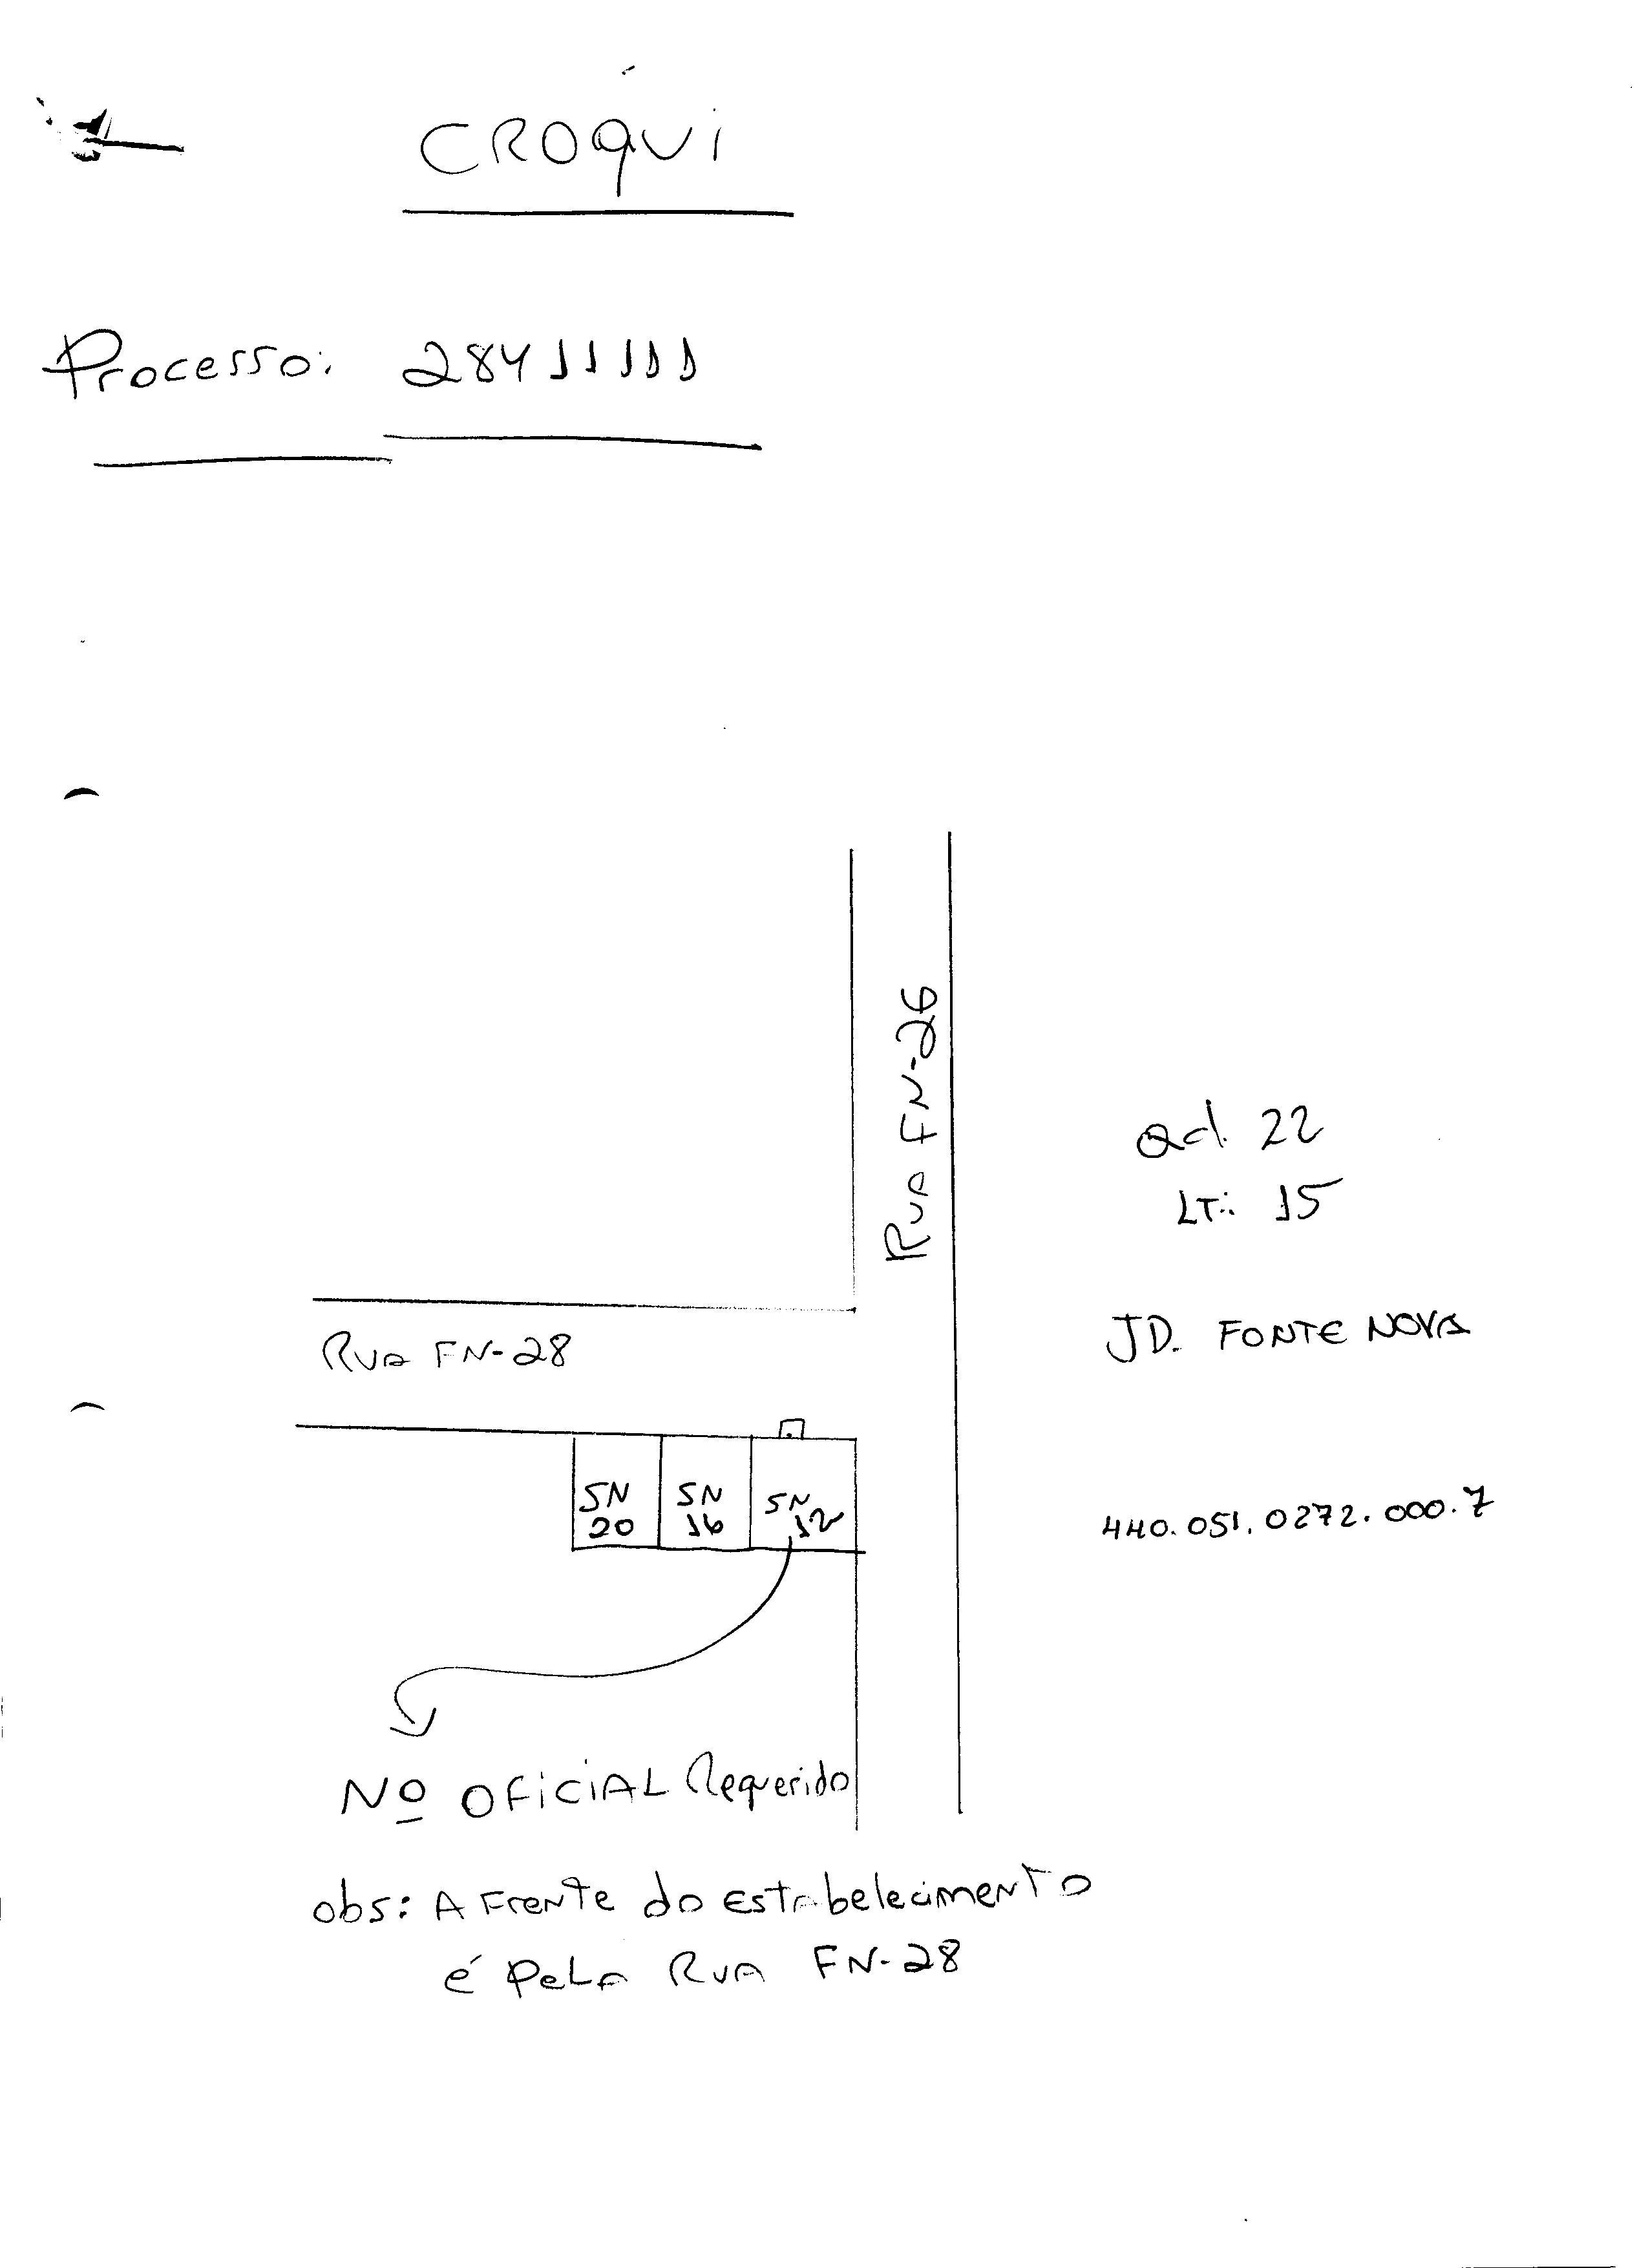 CROQUI
Processo: 28411111
RUA FN-26
Qd. 22
LT.: 15
RUA FN-28
JD. FONTE NOVA
SN
20
SN
16
SN
12
440.051.0272.000.7
Nº OFICIAL Requerido
obs: A FRENTE do ESTABELECIMENTO
é PELA RUA FN-28